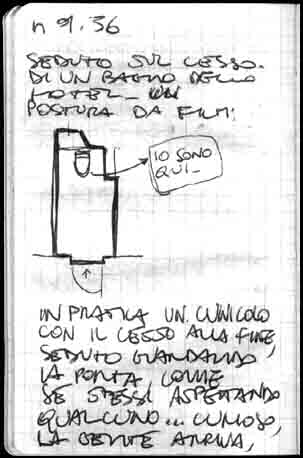 n 9.36
SEDUTO SUL CESSO.
DI UN BAGNO DELLO
HOTEL_ UN
POSTURA DA FILM:
IO SONO
QUI_
IN PRATICA UN CUNICOLO
CON IL CESSO ALLA FINE,
SEDUTO GUARDANDO
LA PORTA, COME
SE STESSI ASPETTANDO
QUALCUNO... CURIOSO,
LA GENTE ARRIVA,